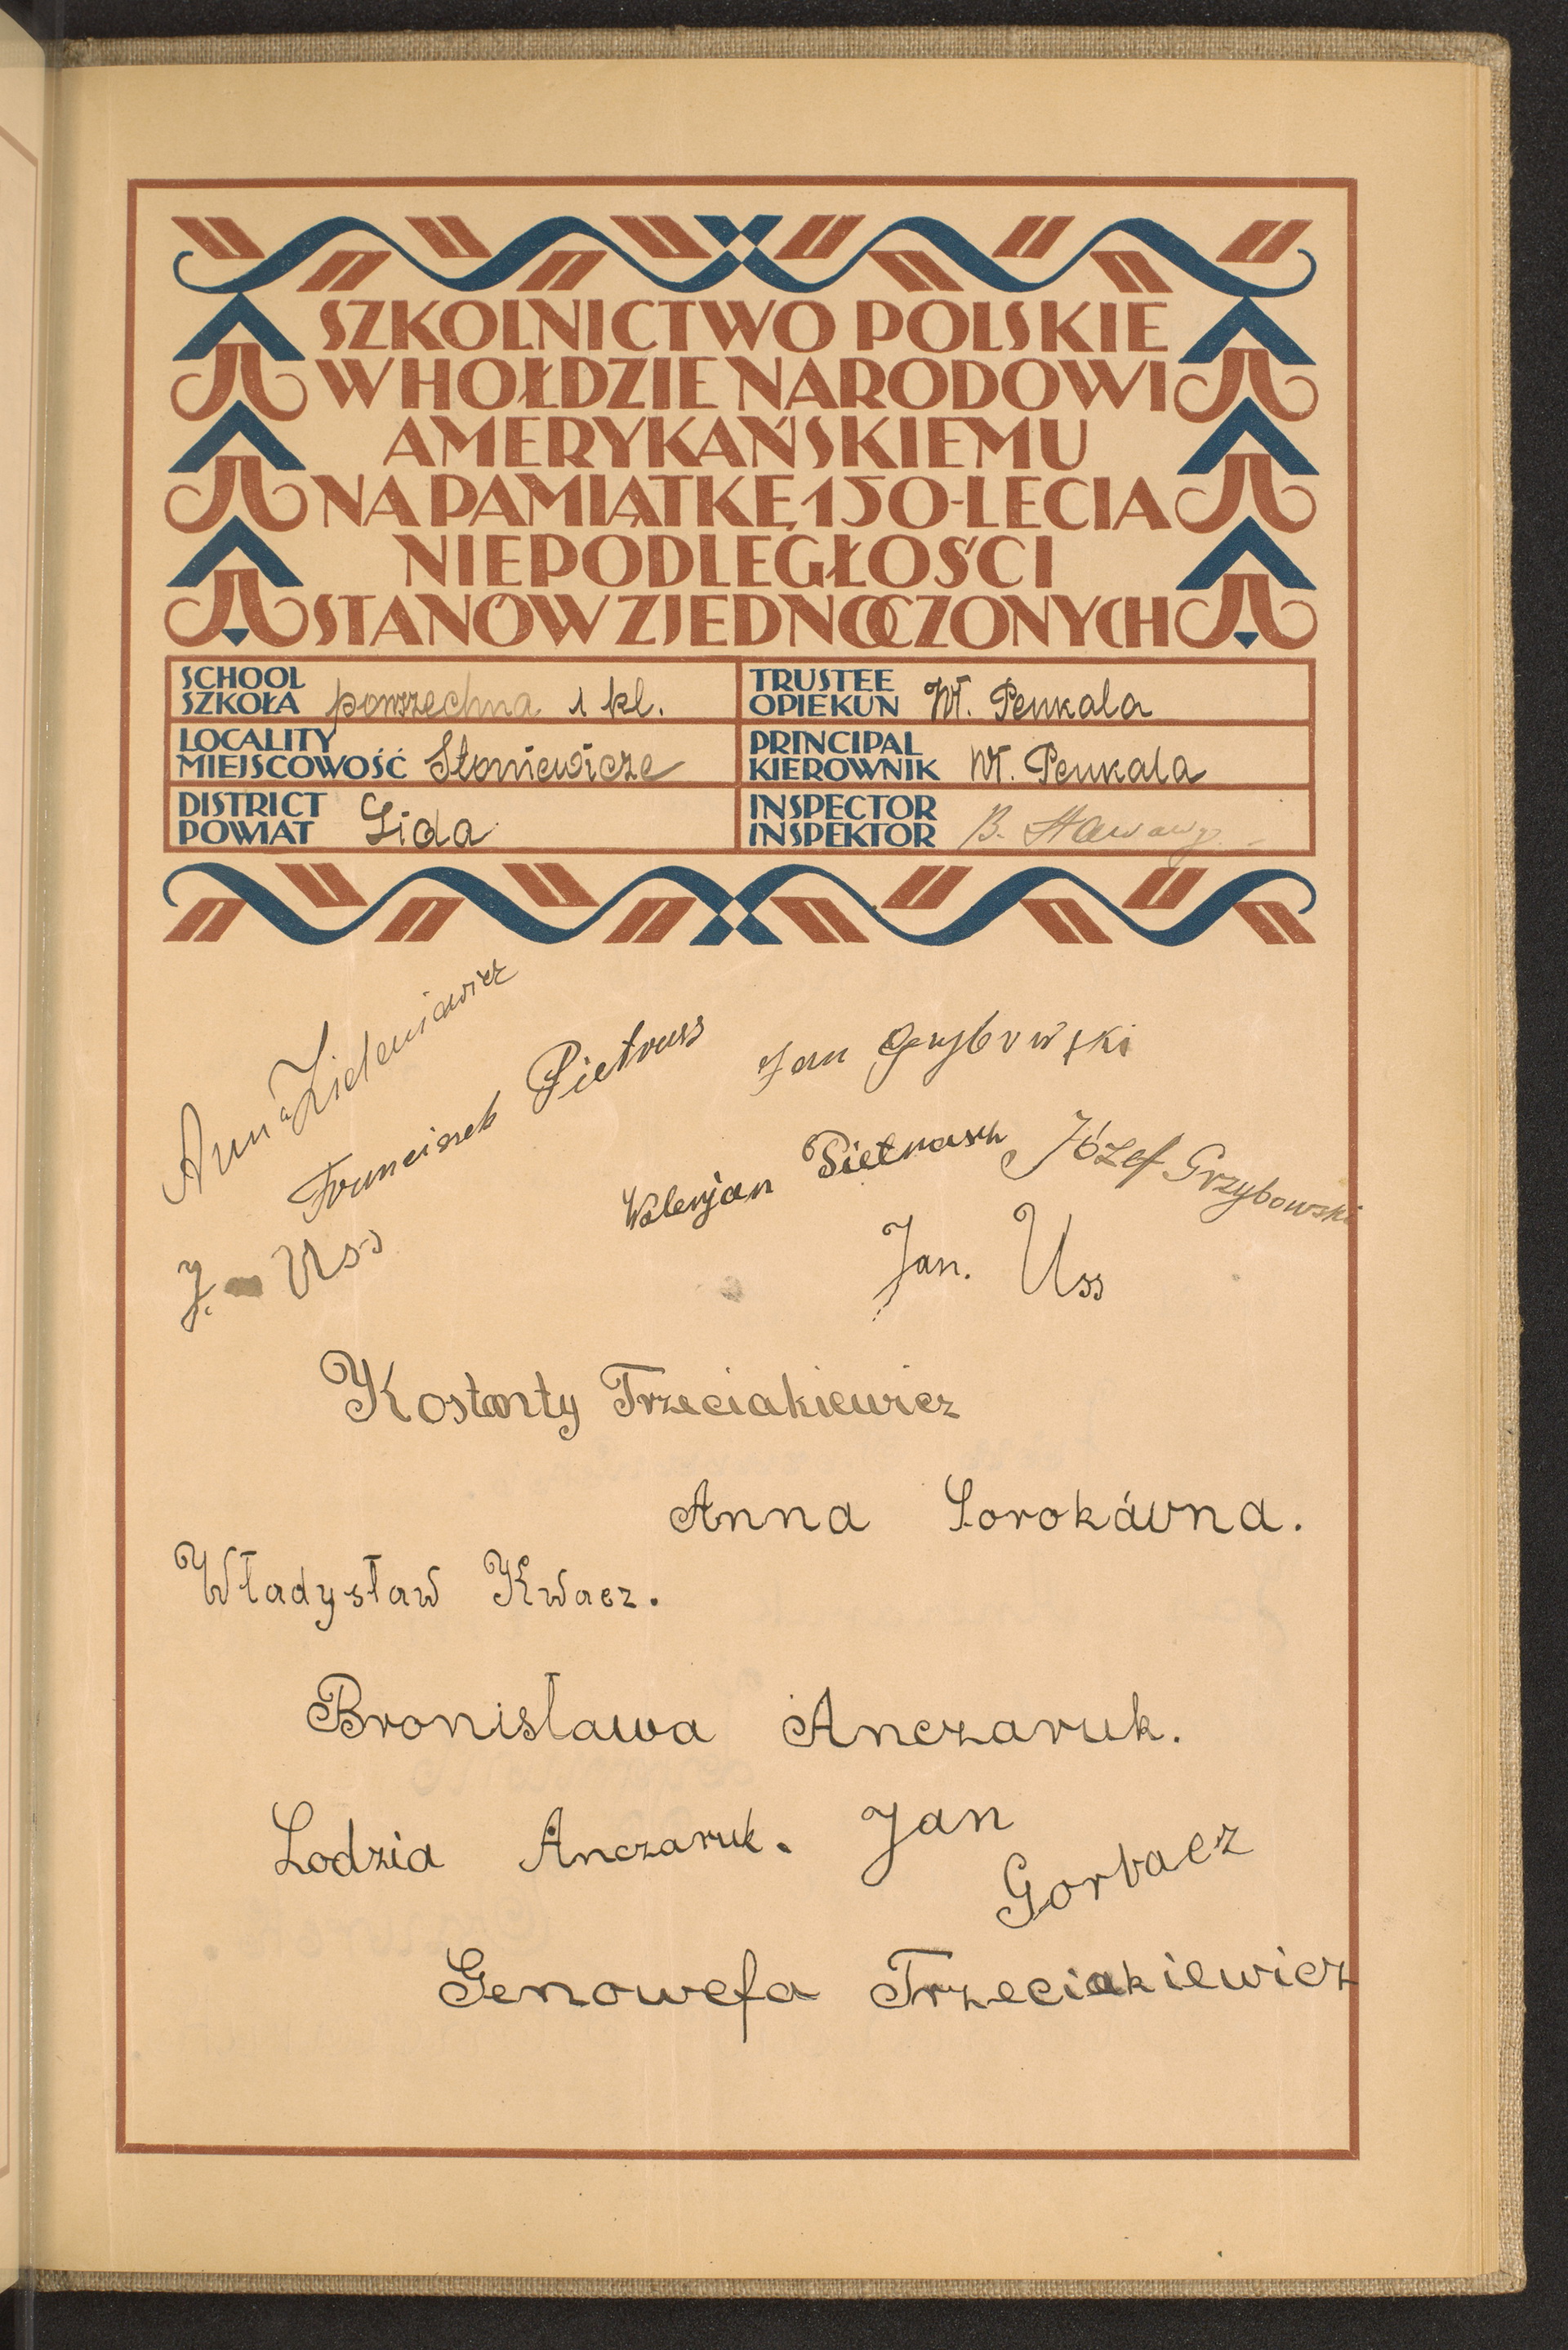 SZKOLNICTWO POLSKIE
W HOŁDZIE NARODOWI
AMERYKAŃSKIEMU
NA PAMIĄTKĘ 150-LECIA
NIEPODLEGŁOŚCI
STANÓW ZJEDNOCZONYCH
SCHOOL
SZKOŁA powszechna 1 kl.
TRUSTEE
OPIEKUN Wł. Penkala
LOCALITY
MIEJSCOWOŚĆ Słoniewicze
PRINCIPAL
KIEROWNIK Wł. Penkala
DISTRICT
POWIAT Lida
INSPECTOR
INSPEKTOR B.
Anna Zieleniewicz
Franciszek Pietrass
Jan Grybowski
Walerjan Pietrasch
Józef Grzybowski
J. Uss
Jan. Uss
Kostanty Trzeciakiewicz
Anna Sorokówna.
Władysław Kwacz.
Bronisława Anczaruk.
Lodzia Anczaruk.
Jan Gorbacz
Genowefa Trzeciakiewicz